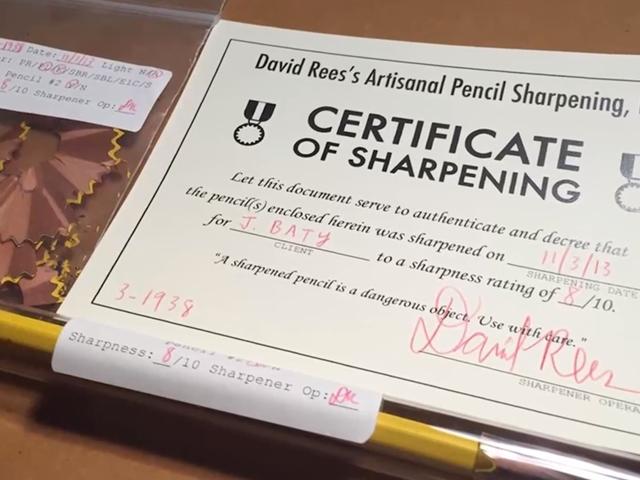 -1938 Date: 11/3/13 Light N/
: PR/ /SBR/SBL/EIC/S
Pencil #2 Y/N
8/10 Sharpener Op: DR
David Rees's Artisanal Pencil Sharpening,
CERTIFICATE
OF SHARPENING
Let this document serve to authenticate and decree that
the pencil(s) enclosed herein was sharpened on 11/3/13
SHARPENING DATE
for J. BATY to a sharpness rating of 8/10.
CLIENT
"A sharpened pencil is a dangerous object. Use with care."
3-1938
David Rees
SHARPENER OPERA
Sharpness: 8/10 Sharpener Op: DR